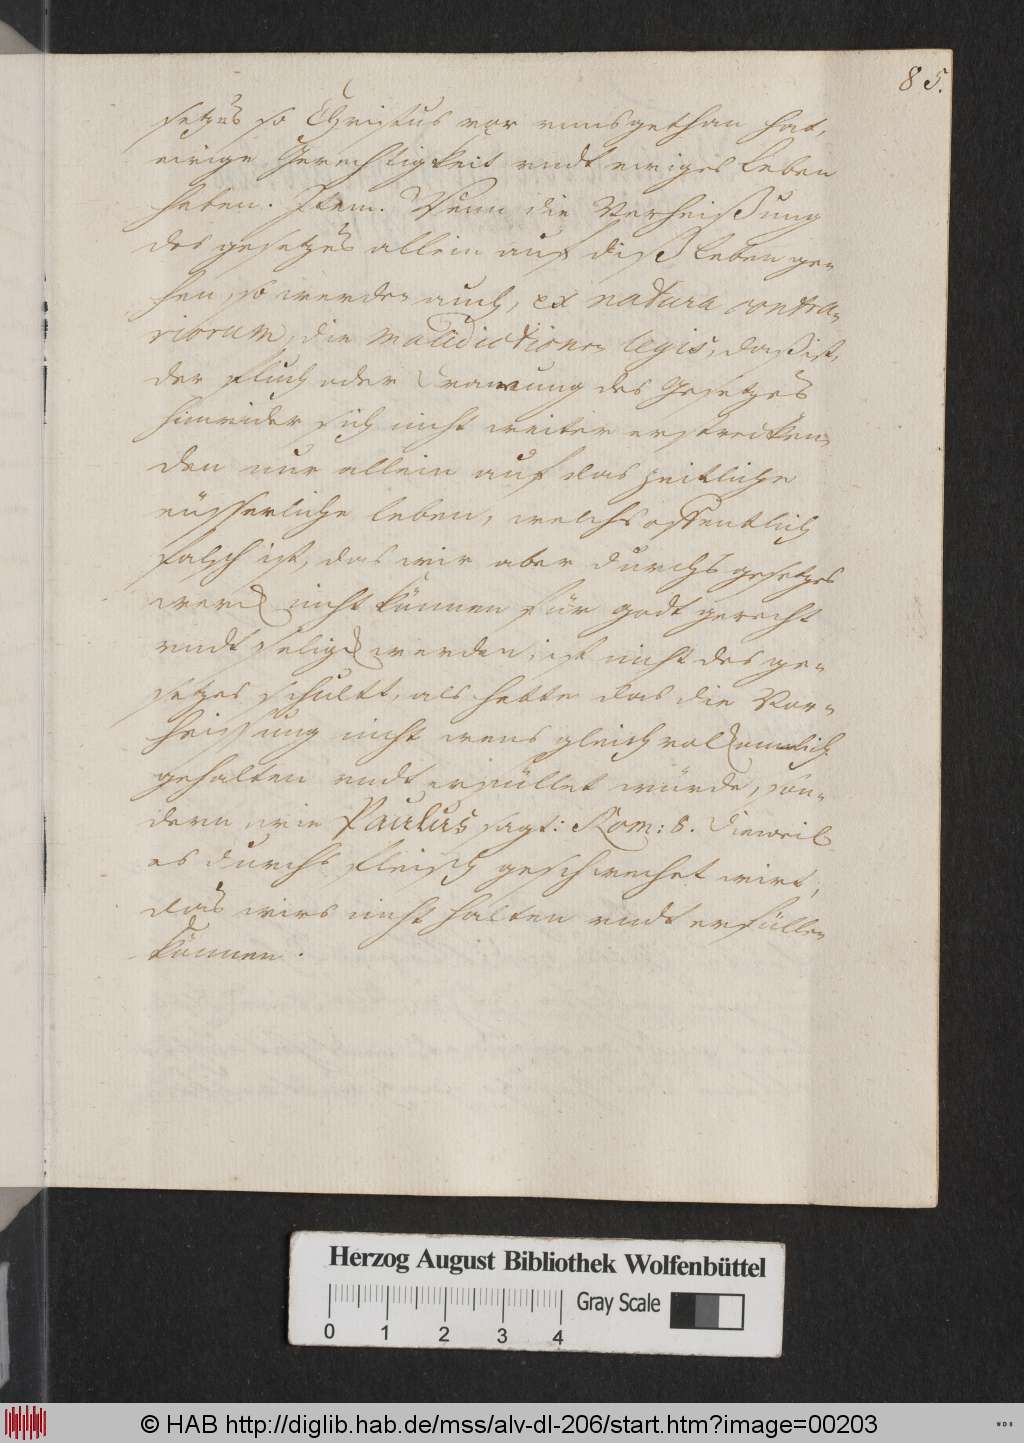 85.
setzes so Christus vor unns gethan hat,
ewige Gerechtigkeit undt ewiges Leben
haben. Item. Wenn die Verheißung
des gesetzes allein auf diß Leben ge=
hen, so werden auch, ex natura contra=
riorum, die maledictionen legis, daß ist,
der Fluch oder Drawung des Gesetzes
hinwider sich nicht weiter erstrecken,
den nur allein auf das zeitliche
eüsserliche leben, welchs offentlich
falsch ist, das wir aber durchs gesetzes
werck nicht können für godt gerecht
undt selig werden, ist nicht des ge=
setzes schultt, als hette das die Ver=
heissung nicht wens gleich volkomelich
gehalten undt erfüllet würde, son=
dern wie Paulus sagt: Rom: 8. Dieweil
es durchs Fleisch geschwechet wirt,
das wirs nicht halten undt erfüllen
können.
Herzog August Bibliothek Wolfenbüttel
Gray Scale
0 1 2 3 4
© HAB http://diglib.hab.de/mss/alv-dl-206/start.htm?image=00203